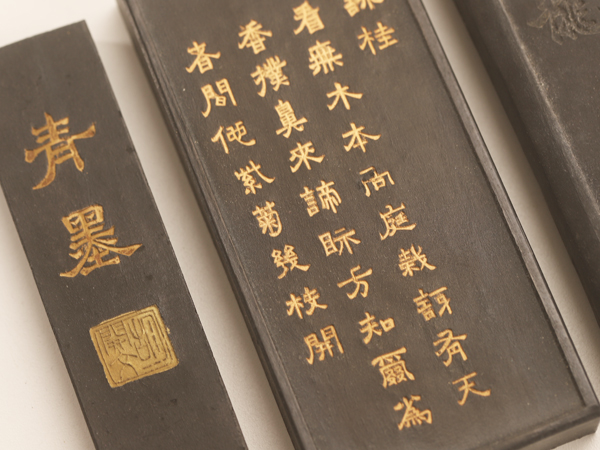 青墨
桂
看無木本向庭栽訝有天
香撲鼻來諦眎方知爾為
者間他紫菊幾枝開